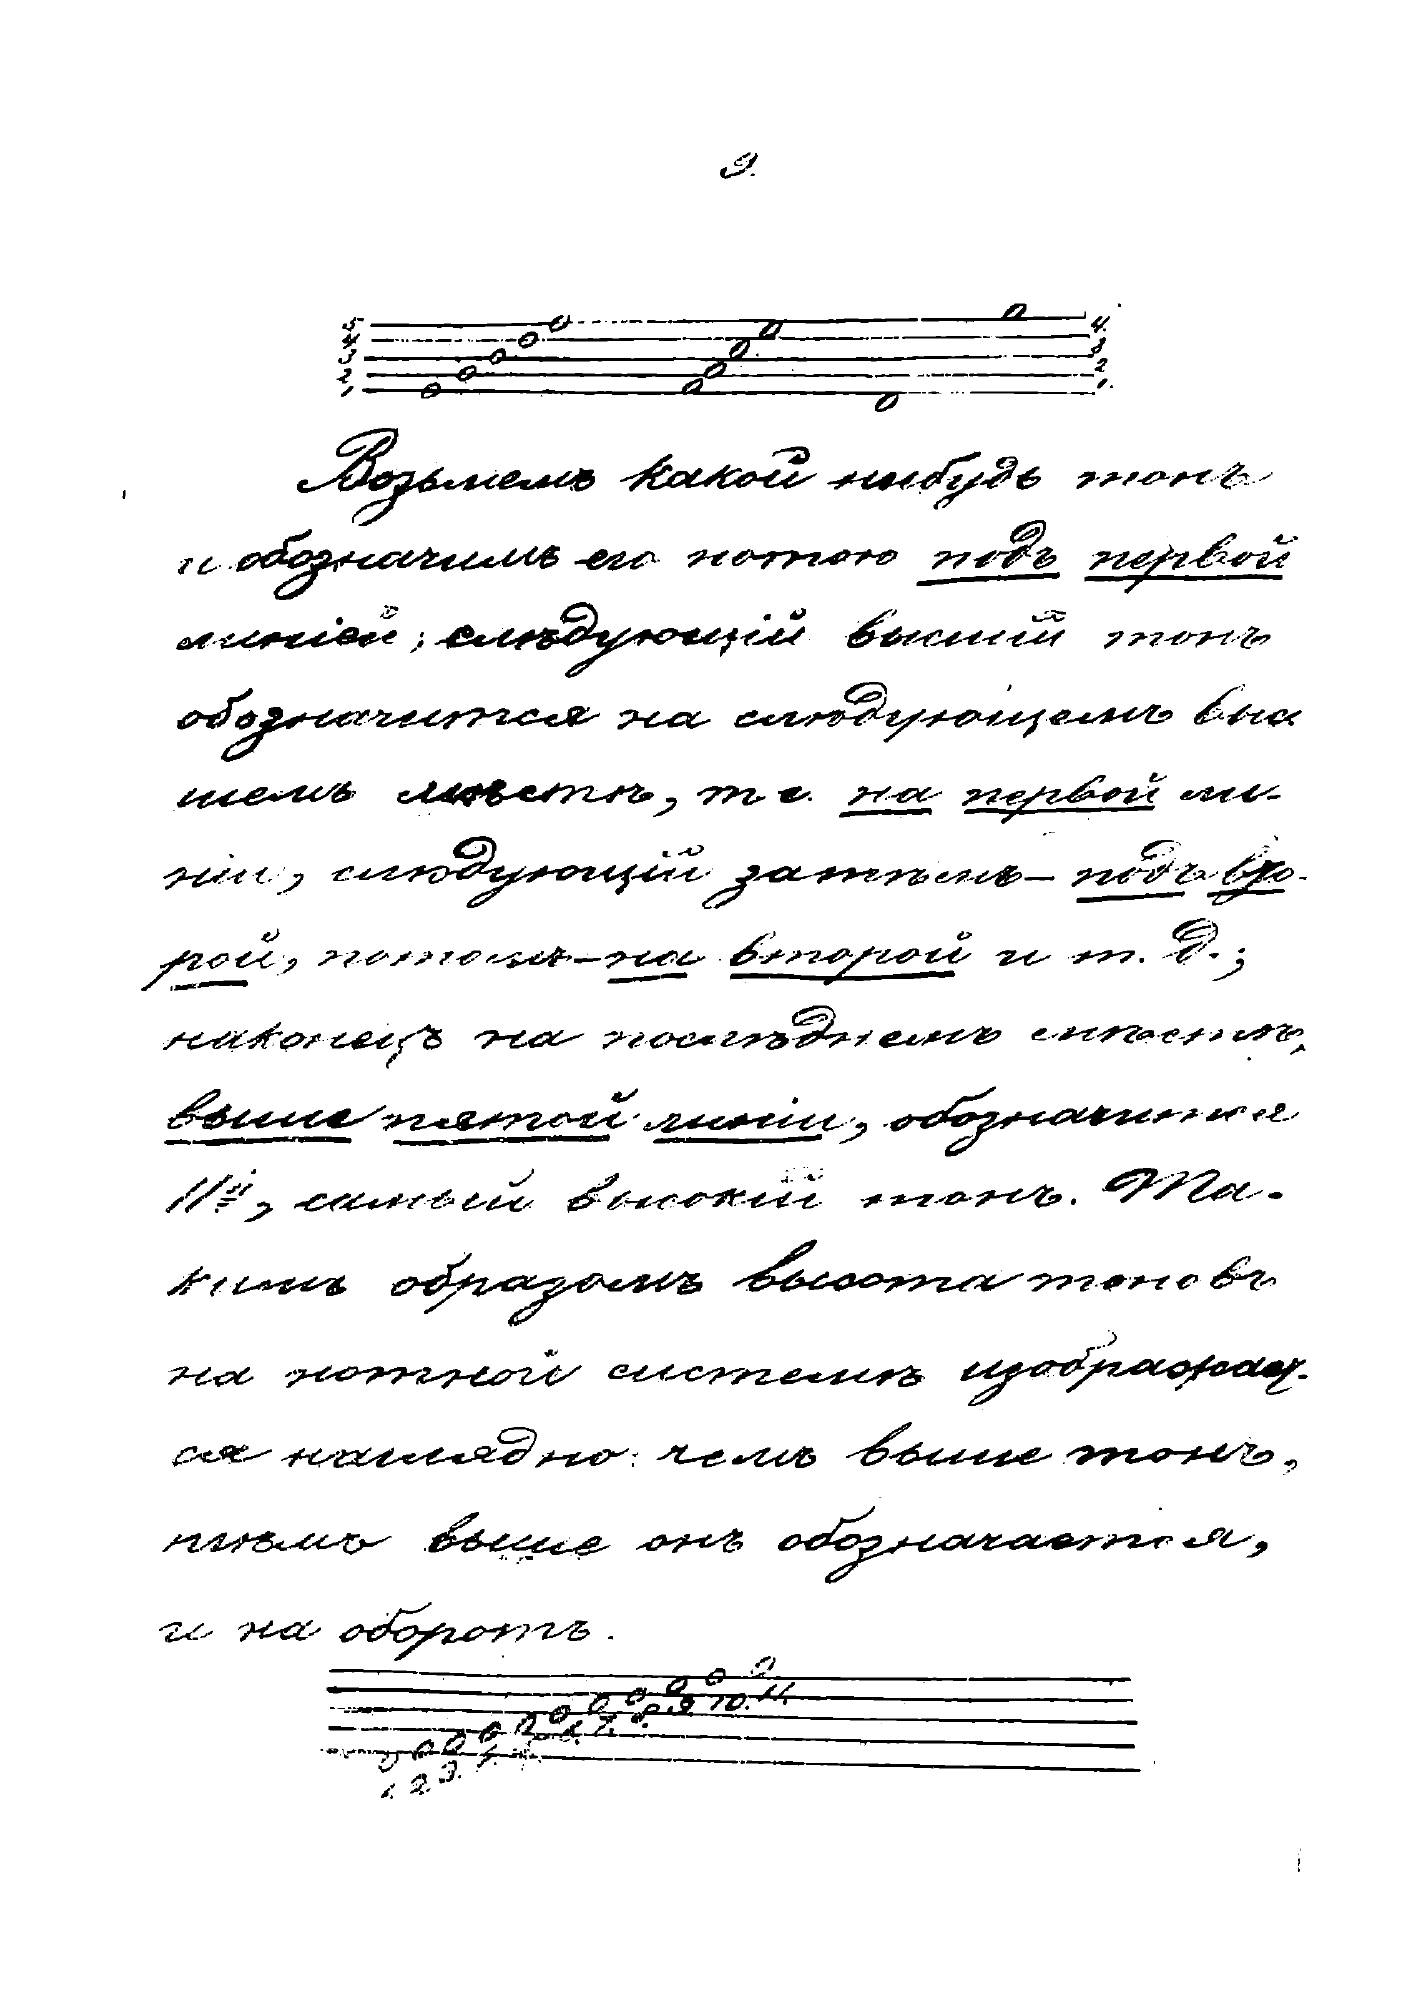 9.
5 4
4 3
3 2
2 1.
1
Возьмемъ какой нибудь тонъ
и обозначимъ его нотою подъ первой
линіей; слѣдующій высшій тонъ
обозначится на слѣдующемъ выс
шемъ мѣстѣ, т е. на первой ли-
ніи, слѣдующій затѣмъ — подъ вто-
рой, потомъ — на второй и т. д.;
наконецъ на послѣднемъ мѣстѣ,
выше пятой линіи, обозначится
11й, самый высокій тонъ. Та-
кимъ образомъ высота тоновъ
на нотной системѣ изображает-
ся наглядно: чемъ выше тонъ,
тѣмъ выше онъ обозначается,
и на оборотъ.
1. 2. 3. 4. 5. 6. 7. 8. 9. 10. 11.